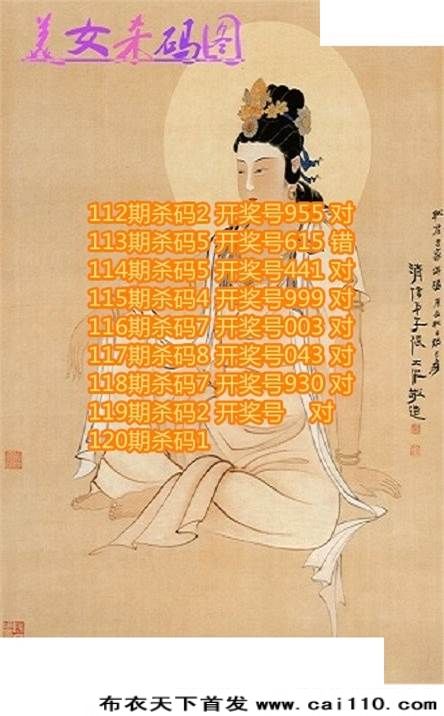 美女杀码图
112期杀码2 开奖号955 对
113期杀码5 开奖号615 错
114期杀码5 开奖号441 对
115期杀码4 开奖号999 对
116期杀码7 开奖号003 对
117期杀码8 开奖号043 对
118期杀码7 开奖号930 对
119期杀码2 开奖号 对
120期杀码1
布衣天下首发 www.cai110.com